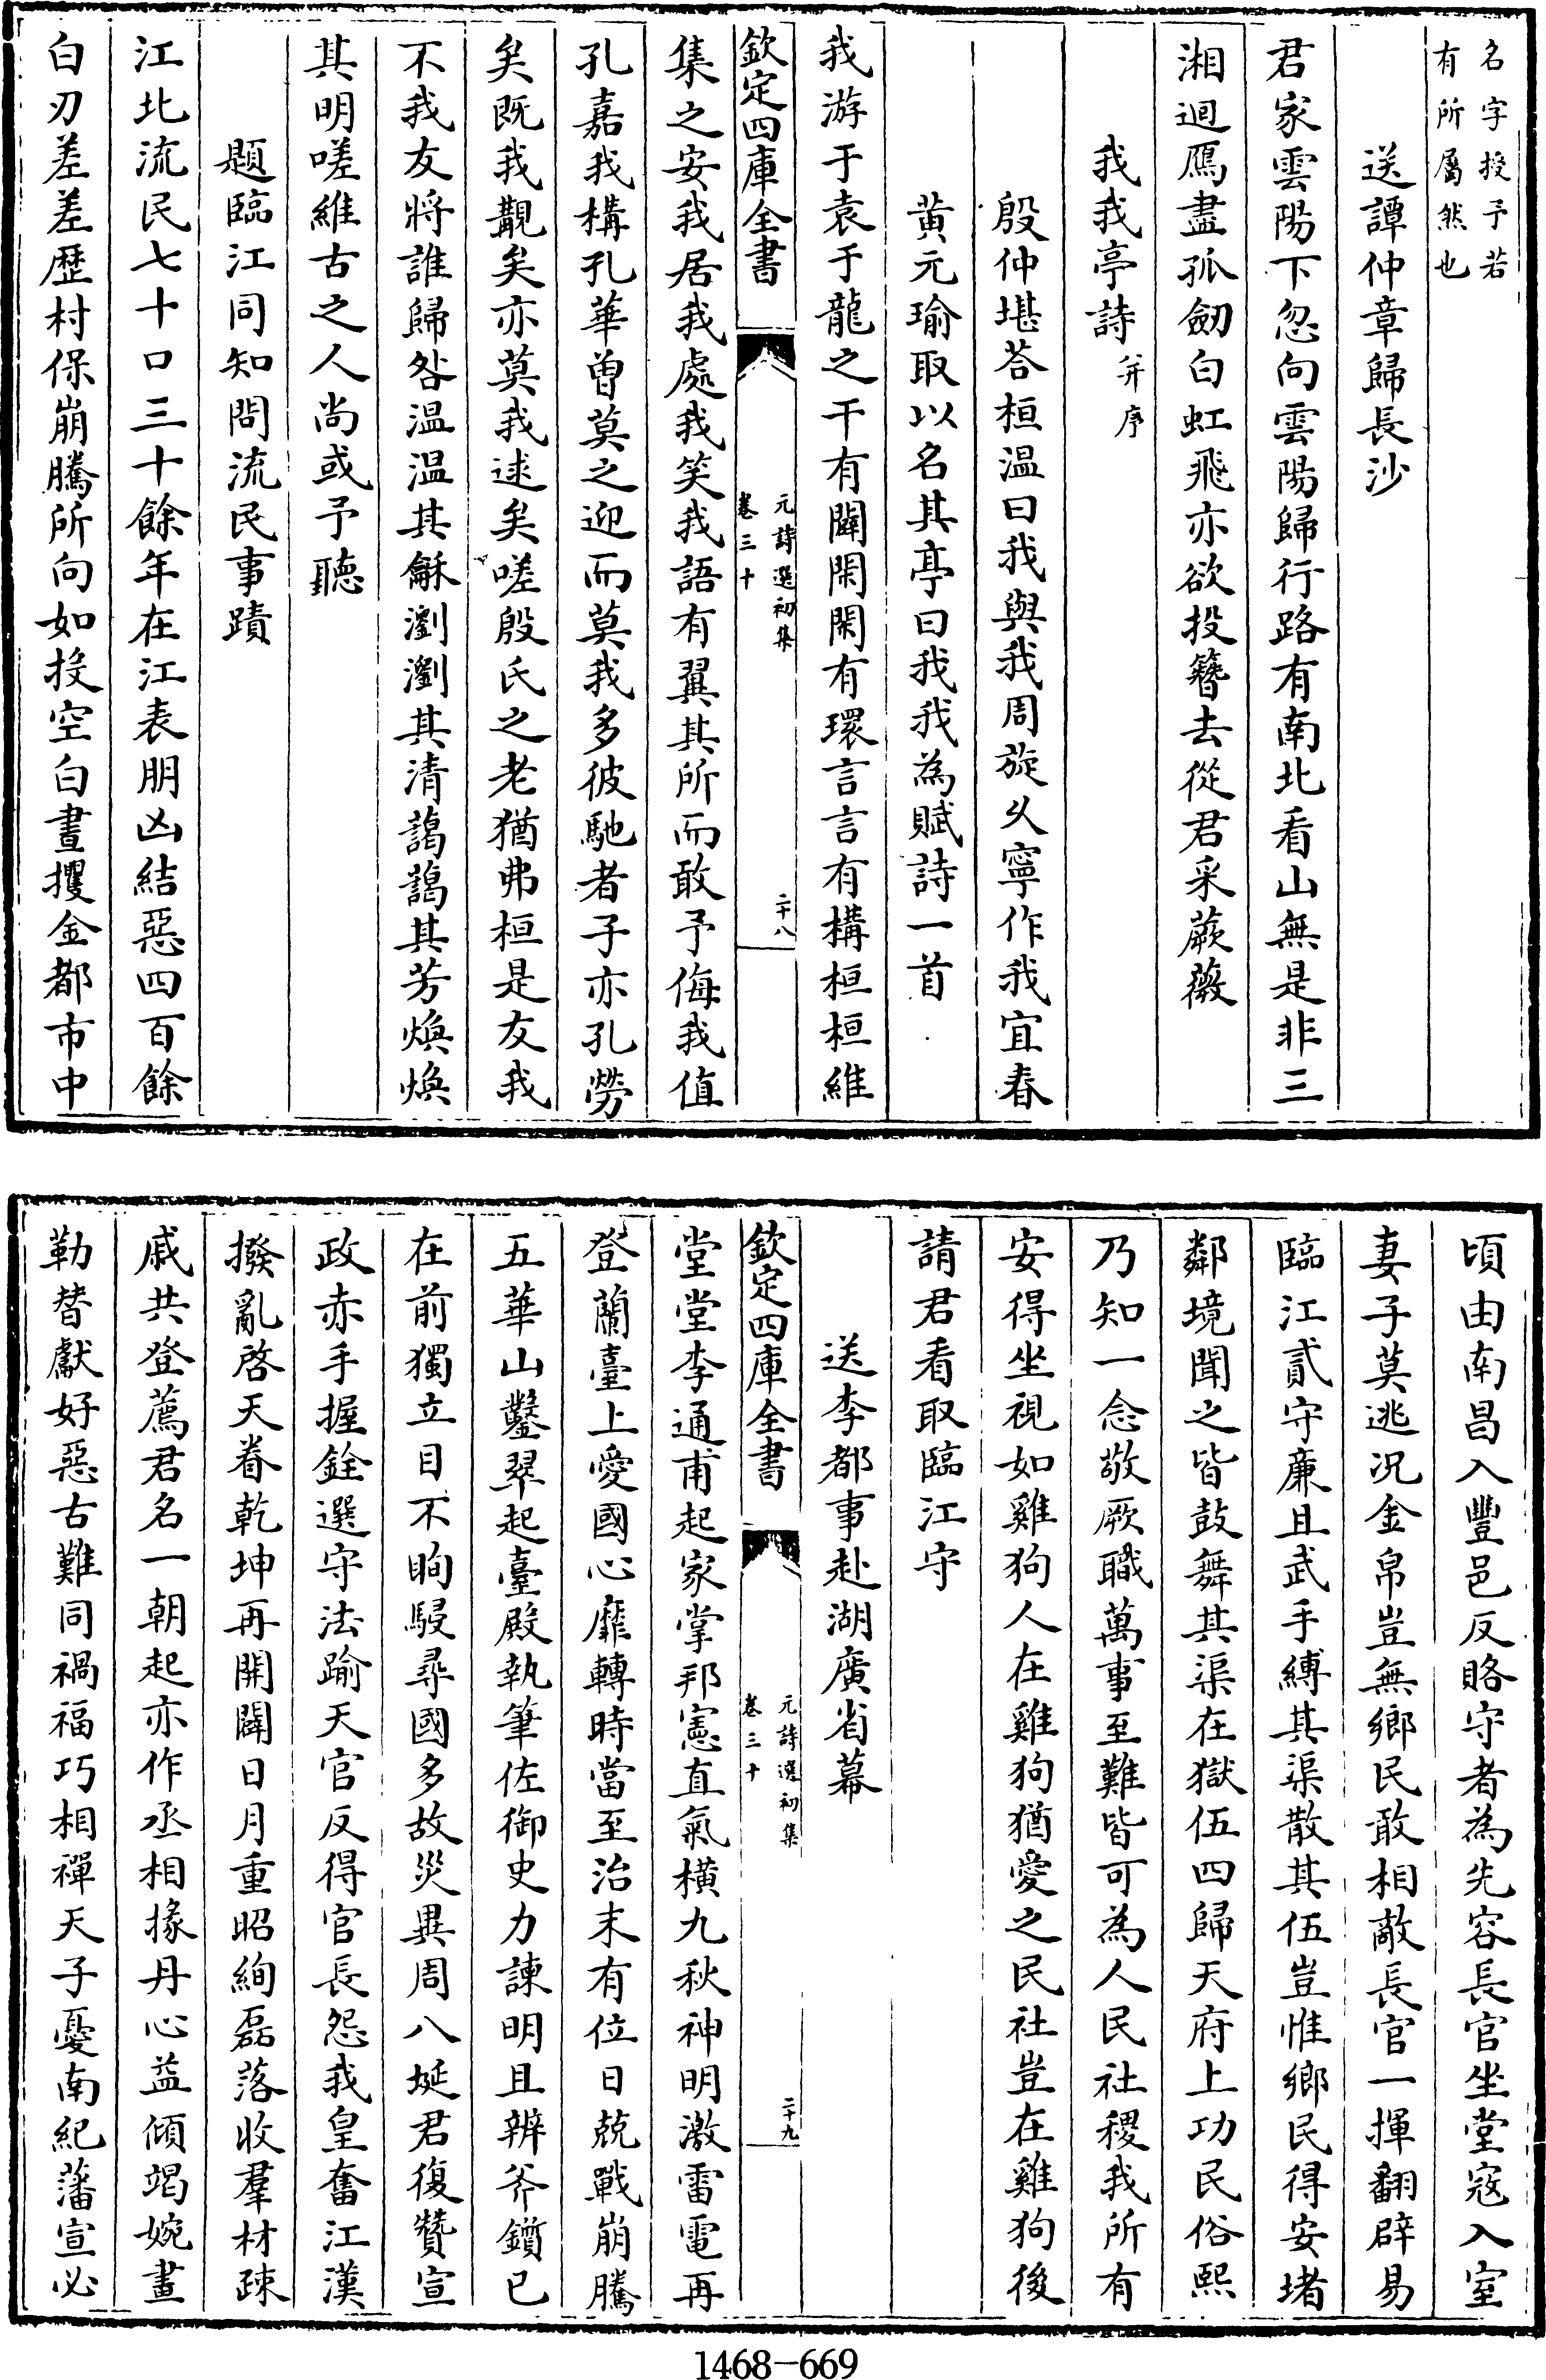 名字授予若
有所屬然也
送譚仲章歸長沙
君家雲陽下忽向雲陽歸行路有南北看山無是非三
湘迴鴈盡孤劒白虹飛亦欲投簪去從君采蕨薇
我我亭詩并序
殷仲堪荅桓温曰我與我周旋乆寧作我宜春
黄元瑜取以名其亭曰我我為賦詩一首
我游于袁于龍之干有闢閑閑有環言言有構桓桓維
欽定四庫全書
元詩選初集
卷三十
二十八
集之安我居我處我笑我語有翼其所而敢予侮我值
孔嘉我構孔華曽莫之迎而莫我多彼馳者子亦孔勞
矣既我覯矣亦莫我逑矣嗟殷氏之老猶弗桓是友我
不我友將誰歸咎温温其龢瀏瀏其清藹藹其芳煥煥
其明嗟維古之人尚或予聽
題臨江同知問流民事蹟
江北流民七十口三十餘年在江表朋凶結惡四百餘
白刃差差歴村保崩騰所向如投空白晝攫金都市中
頃由南昌入豐邑反賂守者為先容長官坐堂寇入室
妻子莫逃况金帛豈無鄉民敢相敵長官一揮翻辟易
臨江貳守亷且武手縛其渠散其伍豈惟鄉民得安堵
鄰境聞之皆鼓舞其渠在獄伍四歸天府上功民俗熙
乃知一念敬厥職萬事至難皆可為人民社稷我所有
安得坐視如雞狗人在雞狗猶愛之民社豈在雞狗後
請君看取臨江守
送李都事赴湖廣省幕
欽定四庫全書
元詩選初集
卷三十
二十九
堂堂李通甫起家掌邦憲直氣横九秋神明激雷電再
登蘭臺上愛國心靡轉時當至治末有位日兢戰崩騰
五華山鑿翠起臺殿執筆佐御史力諫明且辨斧鑕已
在前獨立目不眴駸尋國多故災異周八埏君復贊宣
政赤手握銓選守法踰天官反得官長怨我皇奮江漢
撥亂啓天眷乾坤再開闢日月重昭絢磊落收羣材疎
戚共登薦君名一朝起亦作丞相掾丹心益傾竭婉畫
勒替獻好惡古難同禍福巧相禪天子憂南紀藩宣必
1468-669